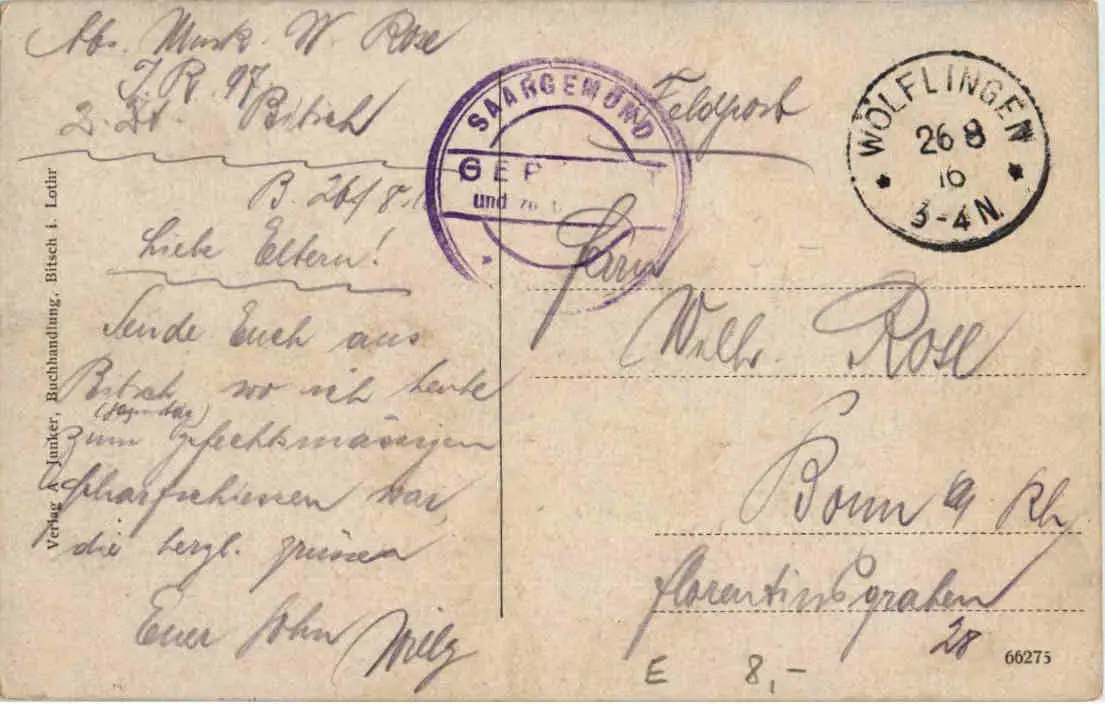 Abs. Musk. W. Rose
I. R. 97.
Bitsch
B. 26/8.
Liebe Eltern!
Sende Euch aus
Bitsch wo ich heute
zum gefechtsmässigen
Scharfschiessen war,
die herzl. Grüsse
Euer Sohn Willy
Verlag A. Junker, Buchhandlung, Bitsch i. Lothr
SAARGEMÜND
GEP
und
Feldpost
WÖLFLINGEN
26 8
16
3-4 N.
Herrn
Wilh. Rose
Bonn a/ Rh
Florentinsgraben
28
66275
E 8,-